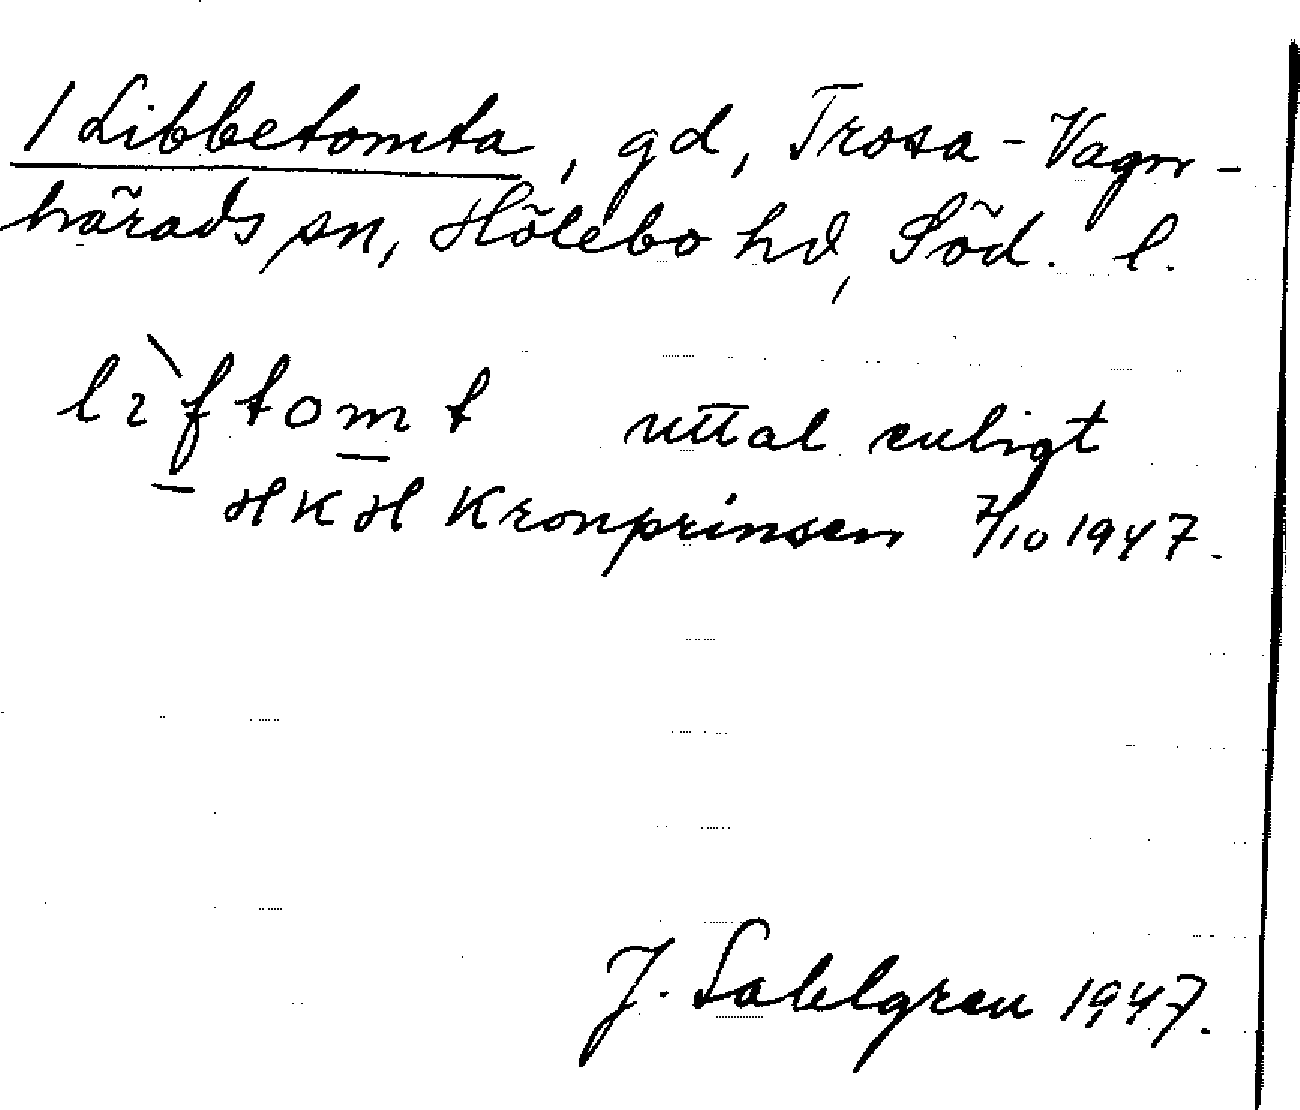 / Libbetomta, gd, Trosa-Vagn-
härads sn, Hölebo hd, Söd. l.
lìftomt uttal enligt
HKH Kronprinsen 7/10 1947.
J. Sahlgren 1947.